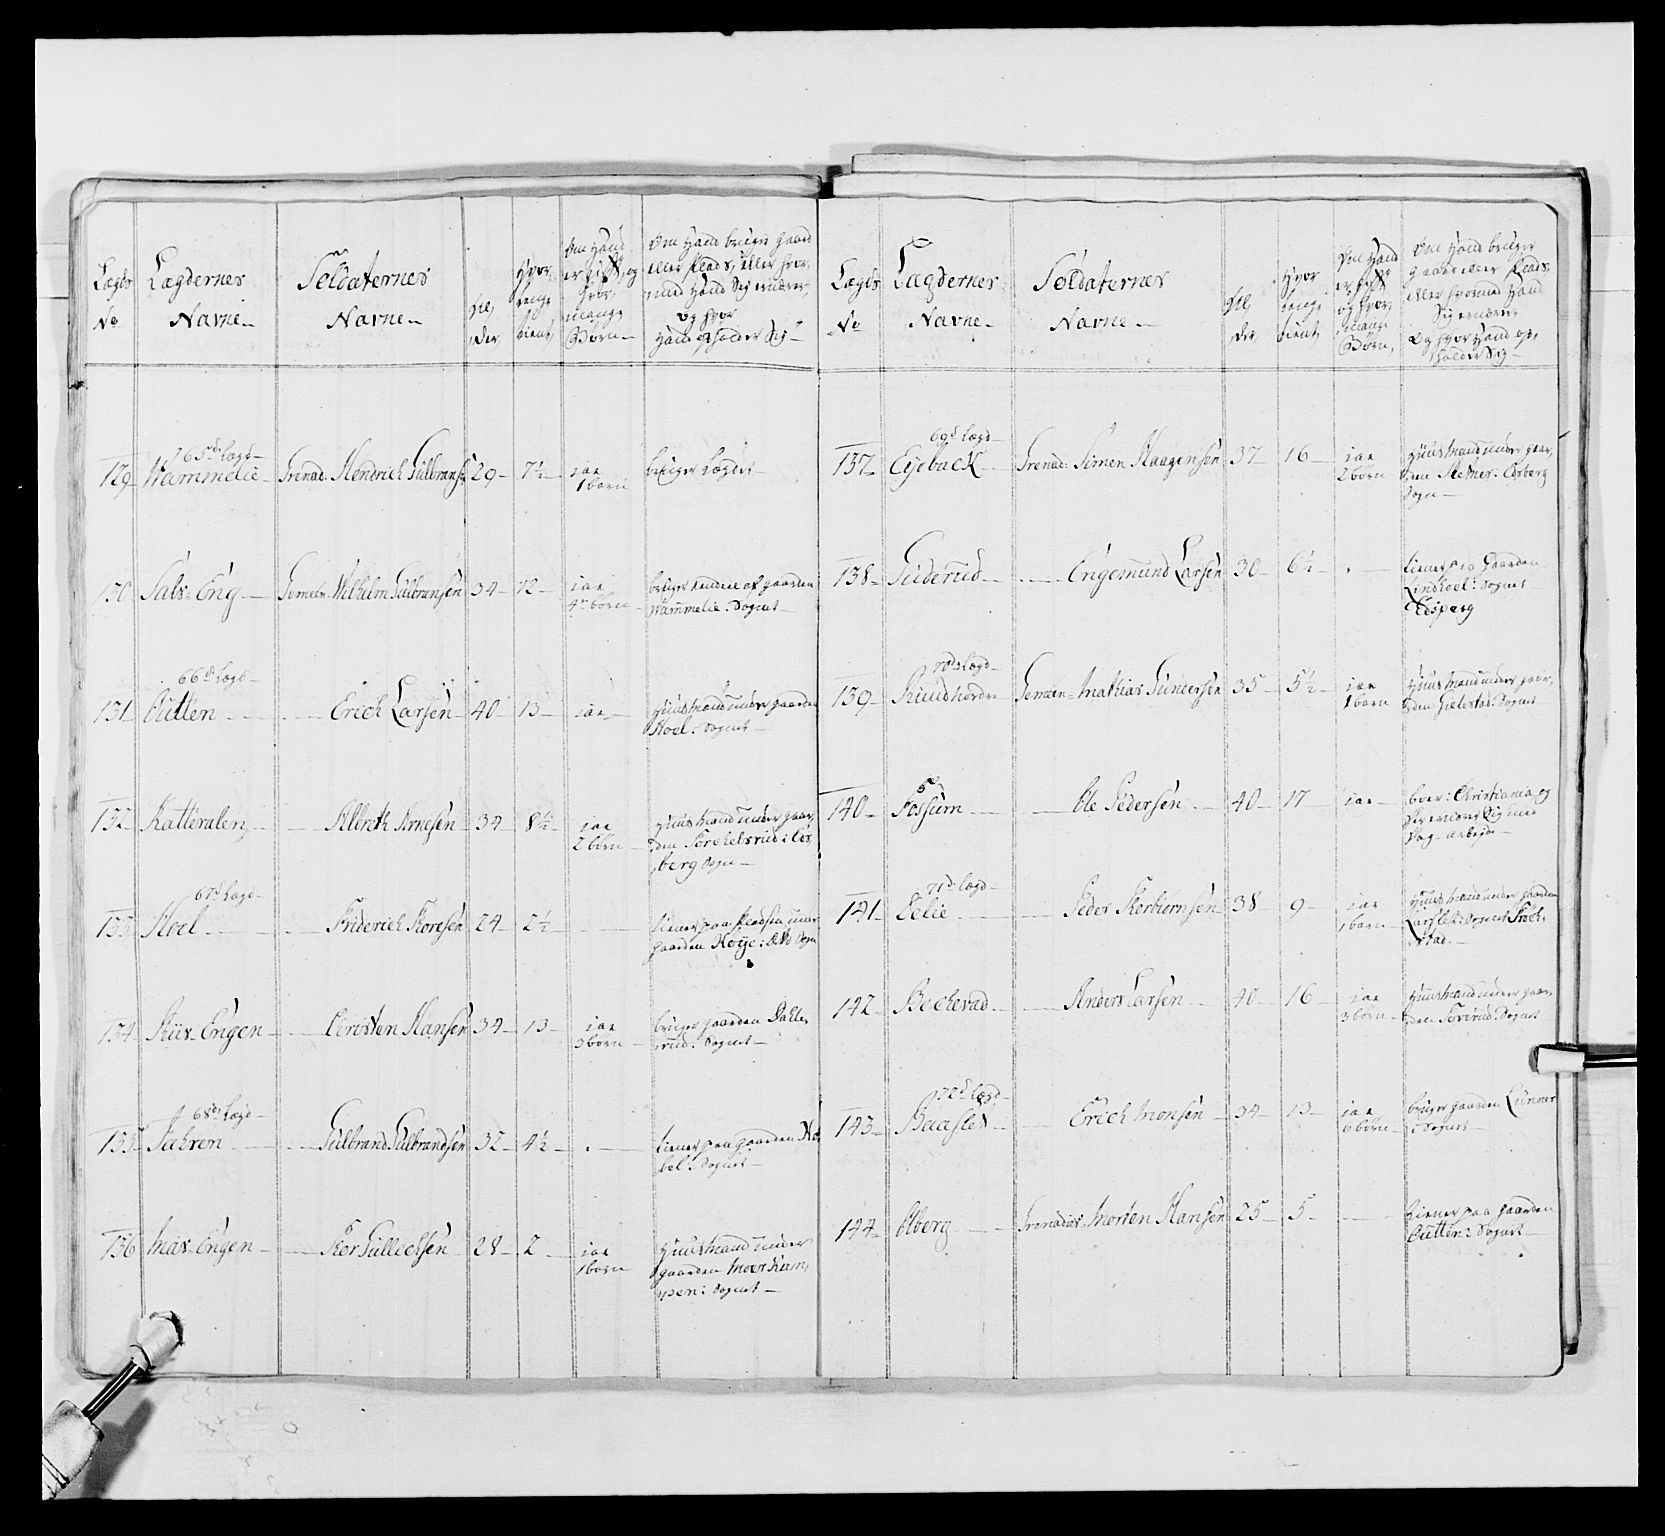 Lægds No
Lægdernes Navne
Soldaternes Navne
Al,der
Hvor længe tient
Om Hand er gift, og hvor mange Børn
Om Hand bruger gaard eller Plads, eller hvormed Hand Sig ernærer, og hvor Hand opholder Sig
65de Lægd
129 Wammelie Grenad. Hendrich Gulbrans: 29 7½ iaa 1 barn bruger Lægdet
130 Sals-Eng Gemeen Wilhelm Gulbransen 34 12 iaa 4re børn bruger enden af gaarden Wammelie: Sognet
66de Lægd
131 Butten Erich Larsen 40 13 iaa Huusmand under gaarden Hoel: Sognet
132 Katteralen Albreth Arnesen 34 8½ iaa 2 børn Huusmand under gaarden Torchelsrud i Eds,berg Sogn
67de Lægd
133 Hoel Friderich Thoresen 24 2½ tiener paa Pladsen under gaarden Sogn
134 Riis-Engen Christen Hansen 34 13 iaa 3 børn bruger gaarden rud: Sognet
68de Lægd
135 Jahren Gulbrand Gulbrandsen 32 4½ tiener paa gaarden bel: Sognet
136 Moes-Engen Thor Gullichsen 28 2 iaa 1 barn Huusmand under gaarden pen: Sognet
Lægds No
Lægdernes Navne
Soldaternes Navne
Al,der
Hvor længe tient
Om Hand er gift og hvor mange Børn
Om Hand bruger gaard eller Plads, eller hvormed Hand Sig ernærer, og hvor Hand op,holder Sig
69de Lægd
137 Eyeback Grenad. Simen Haagensen 37 16 iaa 2 børn Huusmand under gaar,den Edsberg Sogn
138 Guderud Engemund Larsen 30 6½ tiener paa Gaarden Lindhoel: Sognet Edsperg
70de Lægd
139 Ruud nordre Gemeen Mathias Gundersen 35 5½ iaa 1 barn Huusmand under gaar,den Sognet
140 Fossum Ole Pedersen 40 17 iaa boer i Christiania og ernærer Sig med Dag-arbeyde
71de Lægd
141 Peder Thorbiørnsen 38 9 iaa 1 barn Huusmand under gaarden Sognet
142 Beckevad Anders Larsen 40 16 iaa 3 børn Huusmand under gaar,den Sognet
72de Lægd
143 Baaslet Erich Monsen 34 13 iaa 6 børn bruger gaarden Lunner i Sognet
144 Olberg Grenadier Morten Hansen 25 5 tiener paa gaarden Butten: Sognet